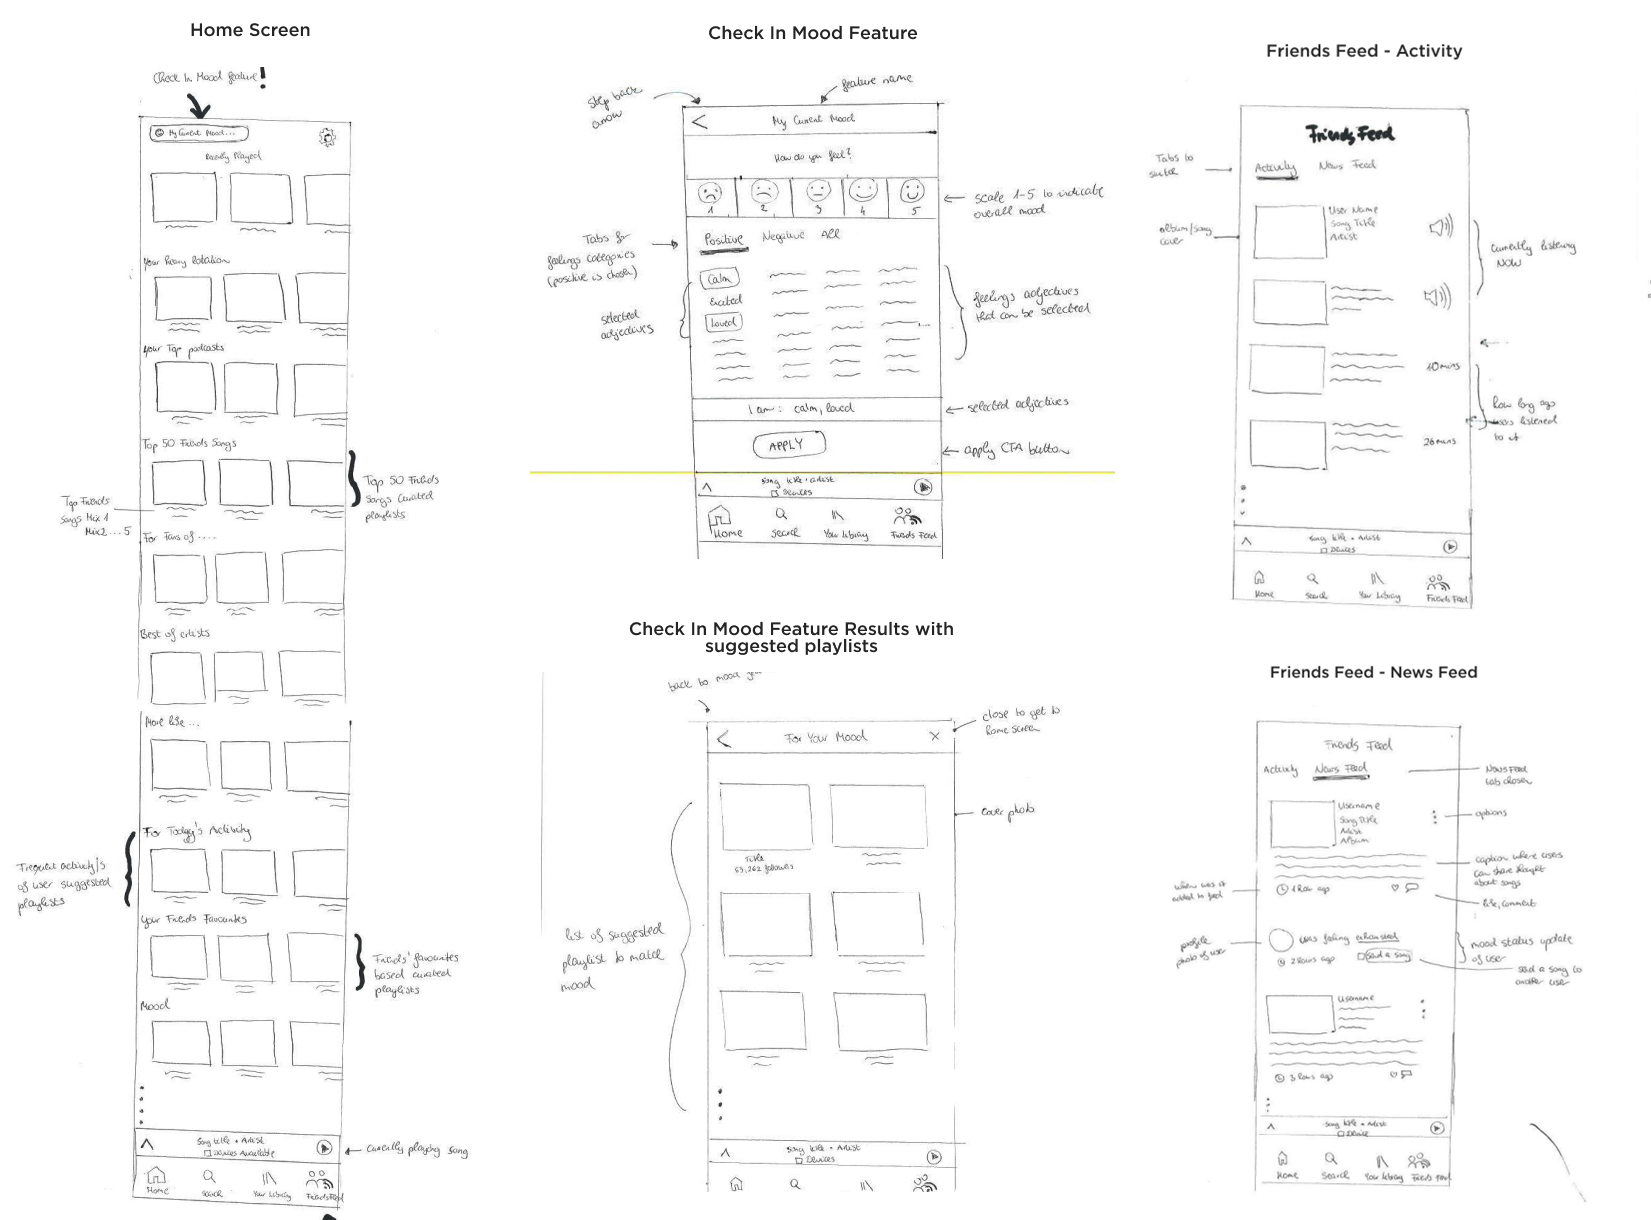 Home Screen
Check In Mood feature!
My Current Mood...
Recently Played
Your Heavy Rotation
Your Top podcasts
Top 50 Friends Songs
Top 50 Friends
Songs curated
playlists
Top Friends
Songs Mix 1
Mix2....5
For Fans of ....
Best of artists
More like ...
For Today's Activity
Frequent activity/s
of user suggested
playlists
Your Friends Favourites
Friends' favourites
based curated
playlists
Mood
Song title • Artist
Devices Available
Currently playing song
Home
Search
Your Library
Friends Feed
Check In Mood Feature
step back
arrow
feature name
My Current Mood
How do you feel?
1 2 3 4 5
scale 1-5 to indicate
overall mood
Tabs for
feelings categories
(positive is chosen)
Positive Negative All
Calm
Excited
Loved
selected
adjectives
feelings adjectives
that can be selected
I am: calm, loved
selected adjectives
APPLY
apply CTA button
Song title • artist
Devices
Home
Search
Your Library
Friends Feed
Check In Mood Feature Results with
suggested playlists
back to mood
close to get to
home screen
For Your Mood
cover photo
Title
59,262 followers
list of suggested
playlist to match
mood
Song title • Artist
Devices
Friends Feed - Activity
Friends Feed
Tabs to
switch
Activity News Feed
album/song
cover
User Name
Song Title
Artist
currently listening
NOW
10 mins
26 mins
how long ago
users listened
to it
Song title • Artist
Devices
Home
Search
Your Library
Friends Feed
Friends Feed - News Feed
Friends Feed
Activity News Feed
News Feed
tab chosen
Username
Song Title
Artist
Album
options
caption where users
can share thought
about songs
when was it
added to feed
1 hour ago
like, comment
profile
photo of user
was feeling exhausted
2 hours ago
Send a song
mood status update
of user
send a song to
another user
Username
3 hours ago
Song title • Artist
Device
Home
Search
Your Library
Friends Feed